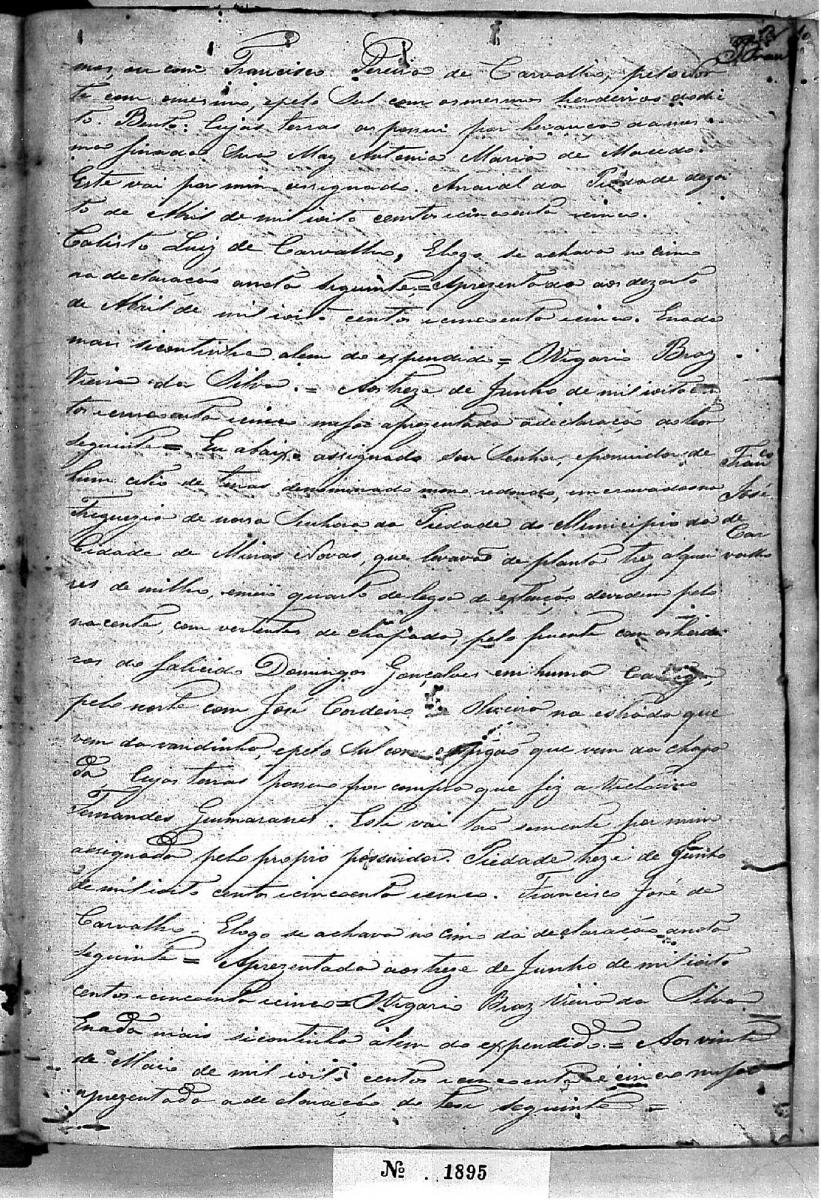 mos, ou com Francisco Pereira de Carvalho, pelo nor
te com o mesmo, e pelo Sul com os mesmos herdeiros do di
to Bento. Cujas terras as possui por herança da mes
ma finada Sua May Antonia Maria de Macedo.
Este vai por mim assignado. Arraial da Piedade dezoi
to de Abril de mil oito centos e cincoenta e cinco.
Calisto Luiz de Carvalho, E logo se achava no cimo
da declaração a nota seguinte = Apresentada aos dezoito
de Abril de mil oito centos e cincoenta e cinco. E nada
mais se continha alem do expendido = O Vigario Braz
Vieira da Silva. = Aos treze de Junho de mil oito cen
tos e cincoenta e cinco me foi apresentada a declaração do teor
seguinte = Eu abaixo assignado sou Senhor, e possuidor de
hum citio de terras denominado morro redondo, encravadas na
Freguezia de nossa Senhora da Piedade do Municipio da
Cidade de Minas Novas, que levarão de planta trez alquei
res de milho, e meio quarto de legoa de extenção devedem pelo
nacente, com vertentes de chapada, pelo puente com os herdei
ros do falicido Domingos Gonçalves em huma
pelo norte com José Cordeiro Oliveira na estrada que
vem da vardinha, e pelo Sul com espigão que vem da chapa
da Cujas terras possuo por compra que fiz a
Fernandes Guimaraens. Este vai tão somente por mim
assignado pelo proprio possuidor. Piedade treze de Junho
de mil oito centos e cincoenta e cinco. Francisco José de
Carvalho. E logo se achava no cimo da declaração a nota
seguinte = Aprezentada aos treze de Junho de mil oito
centos e cincoenta e cinco = O Vigario Braz Vieira da Silva.
E nada mais se continha alem do expendido. = Aos vinte
de Maio de mil oito centos e cincoenta e cinco me foi
aprezentada a declaração do teor seguinte =
Franco
José
de
Car
valho
No. 1895